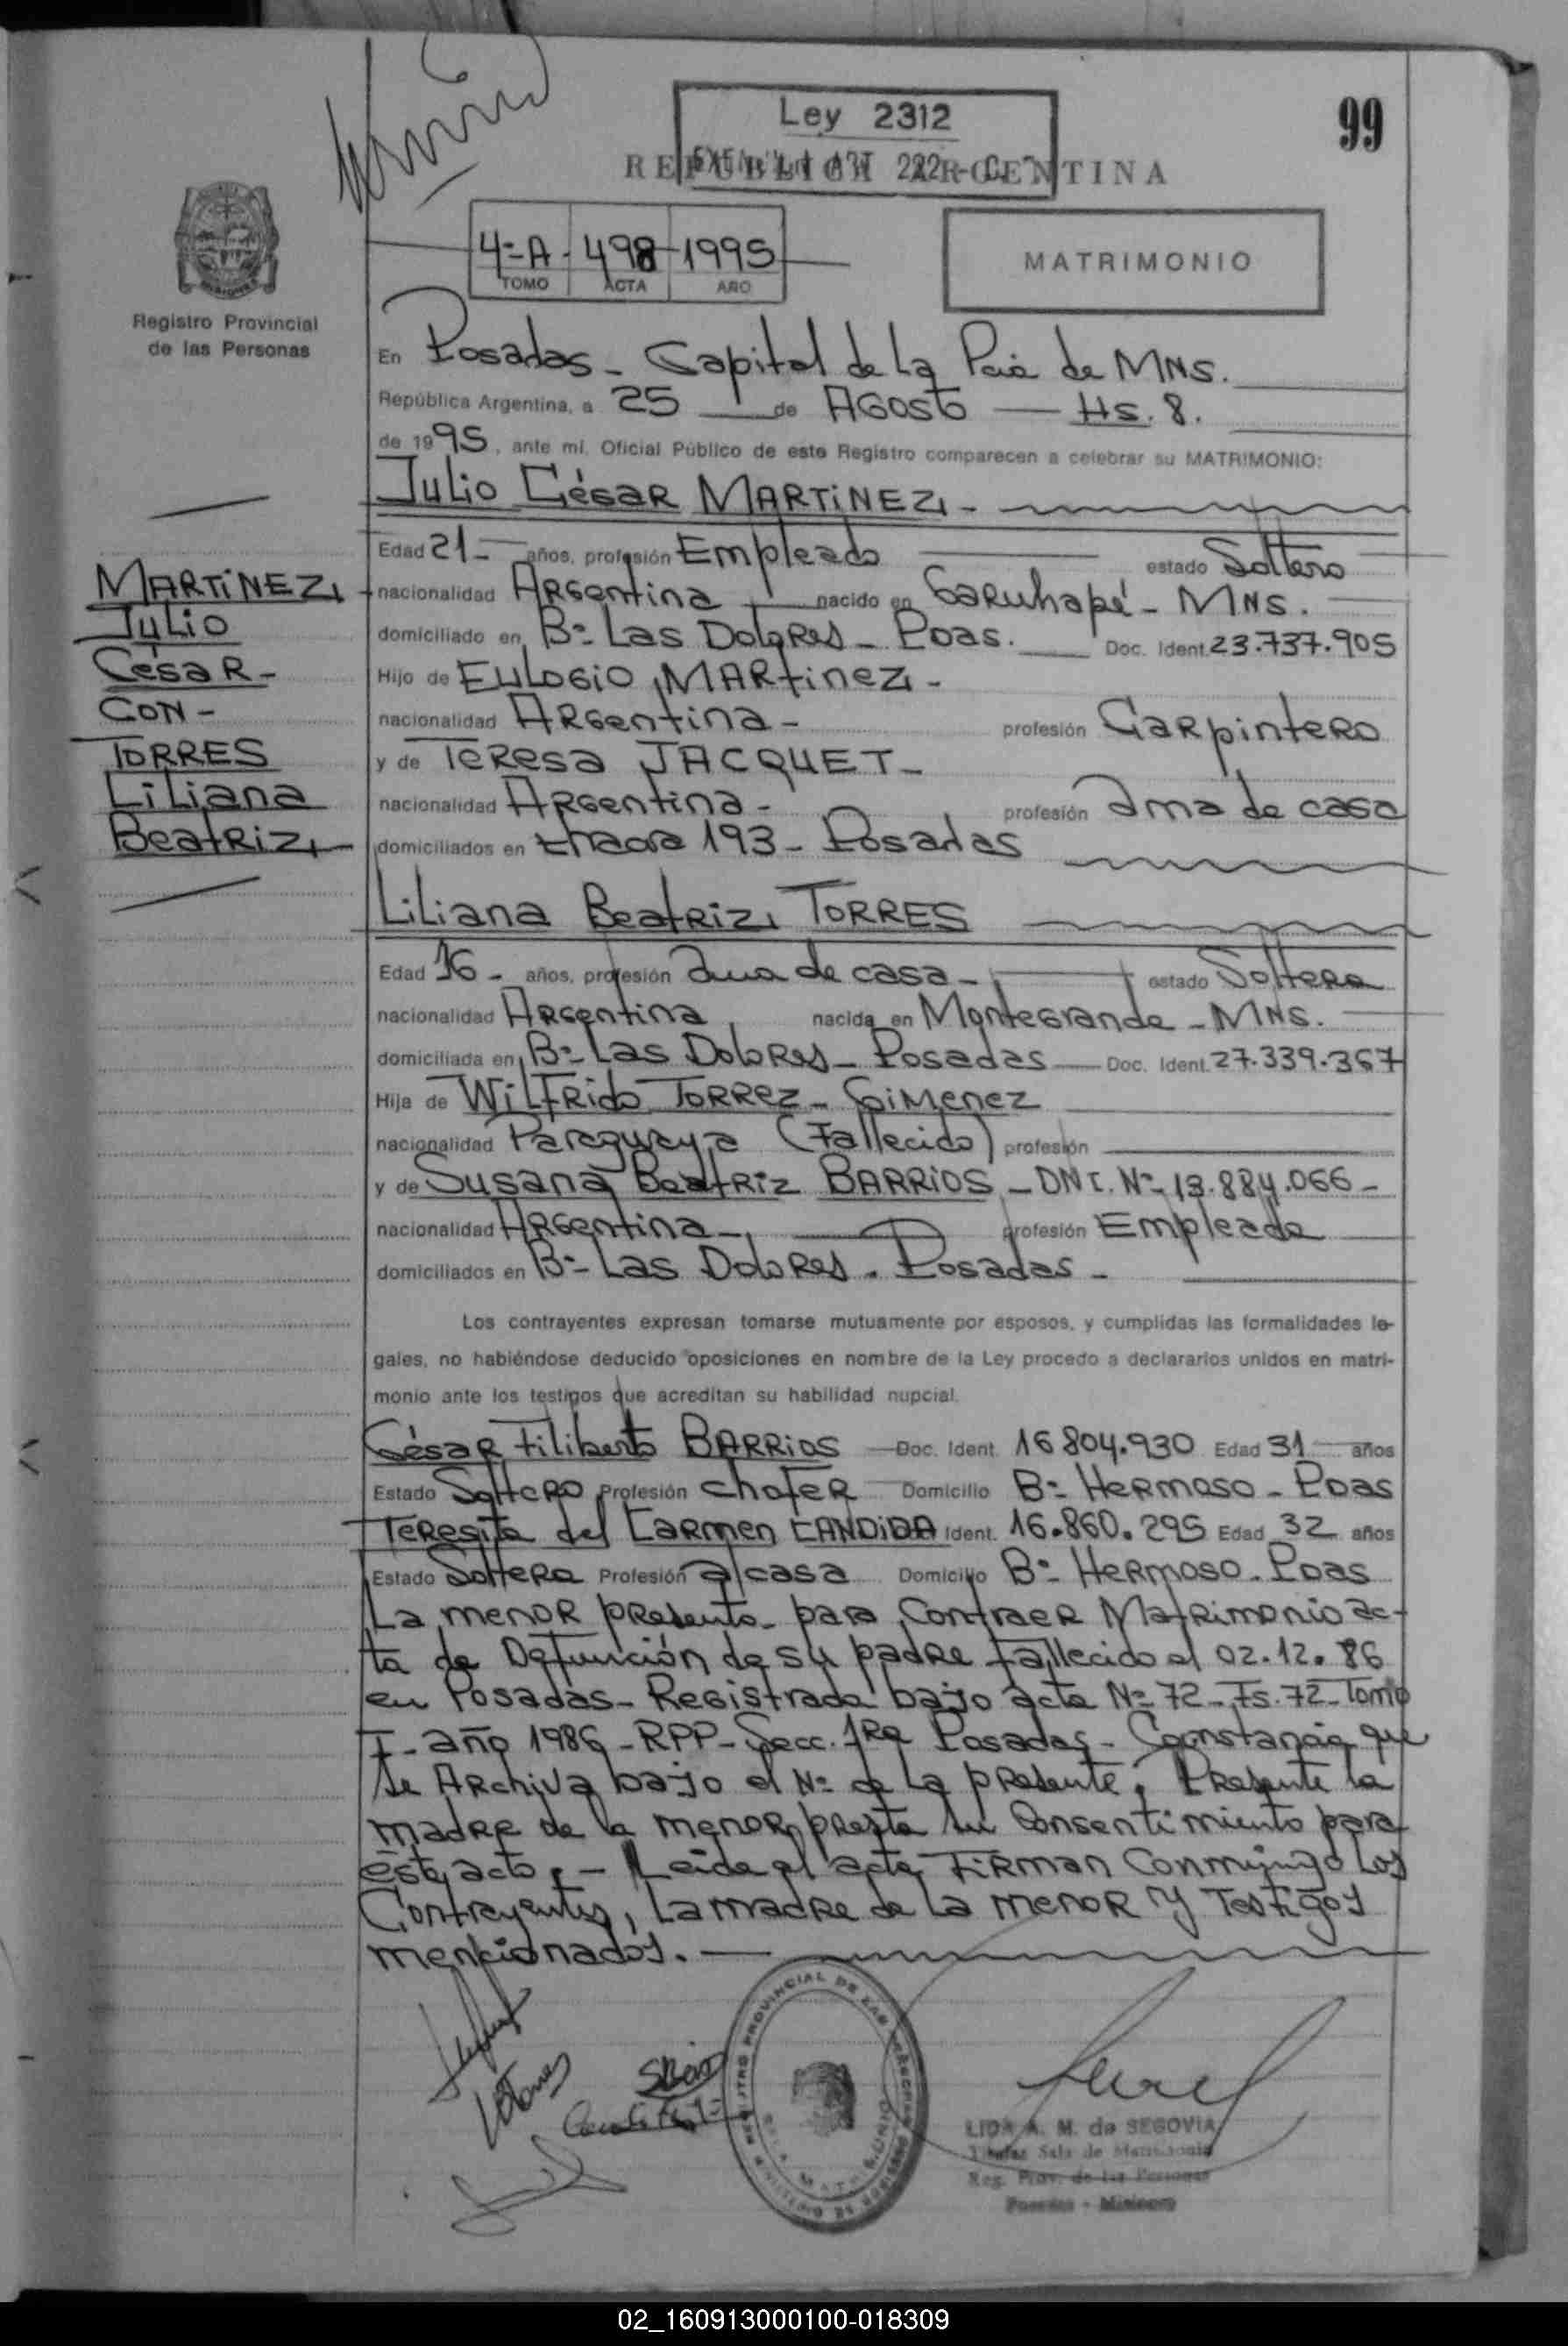 99
Ley 2312
REPUBLICA ARGENTINA
4º-A - 498 - 1995
TOMO ACTA AÑO
MATRIMONIO
Registro Provincial
de las Personas
En Posadas - Capital de la Pcia de MNS.
República Argentina, a 25 de AGOSTO — Hs. 8.
de 1995, ante mí, Oficial Público de este Registro comparecen a celebrar su MATRIMONIO:
Julio César MARTINEZ -
Edad 21 - años, profesión Empleado estado Soltero
nacionalidad Argentina nacido en Garuhapé - MNS.
domiciliado en Bº Las Dolores - Poas. Doc. Ident. 23.737.905
Hijo de Eulogio MARTINEZ -
nacionalidad Argentina - profesión Carpintero
y de Teresa JACQUET -
nacionalidad Argentina - profesión ama de casa
domiciliados en 193 - Posadas
MARTINEZ
Julio
César -
CON -
TORRES
Liliana
Beatriz
Liliana Beatriz TORRES
Edad 16 - años, profesión ama de casa - estado Soltera
nacionalidad Argentina nacida en Montegrande - MNS.
domiciliada en Bº Las Dolores - Posadas — Doc. Ident. 27.339.367
Hija de Wilfrido TORREZ - Gimenez
nacionalidad Paraguaya (Fallecido) profesión
y de Susana Beatriz BARRIOS - DNI. Nº 13.884.066 -
nacionalidad Argentina - profesión Empleada
domiciliados en Bº Las Dolores - Posadas -
Los contrayentes expresan tomarse mutuamente por esposos, y cumplidas las formalidades le-
gales, no habiéndose deducido oposiciones en nombre de la Ley procedo a declararlos unidos en matri-
monio ante los testigos que acreditan su habilidad nupcial.
César Filiberto BARRIOS Doc. Ident. 16.804.930 Edad 31 años
Estado Soltero Profesión chofer Domicilio Bº Hermoso - Poas
Teresita del Carmen CANDIDA Ident. 16.860.295 Edad 32 años
Estado Soltera Profesión a/casa Domicilio Bº Hermoso - Poas
La menor presenta para Contraer Matrimonio ac-
ta de Defunción de su padre fallecido el 02.12.86
en Posadas - Registrada bajo acta Nº 72 - Fs. 72 - Tomo
I - año 1986 - RPP - Secc. 1ra Posadas - Constancia que
se Archiva bajo el Nº de la presente. Presente la
madre de la menor presta su Consentimiento para
éste acto. - Leida el acta Firman Conmigo los
Contrayentes, la madre de la menor y Testigos
mencionados. —
REGISTRO PROVINCIAL DE LAS PERSONAS
MINISTERIO DE GOBIERNO
LIDA A. M. de SEGOVIA
Titular Sala de Matrimonio
Reg. Prov. de las Personas
Posadas - Misiones
02_160913000100-018309